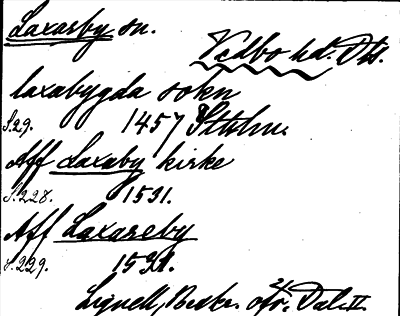 Laxarby sn.
Vedbo hd. Dls.
laxabygda sokn
S.29. 1457 Sthlm.
Aff Laxaby kirke
S.228. 1531.
Aff Laxareby
S.229. 1531.
Lignell, Beskr. öfv. Dal. II.